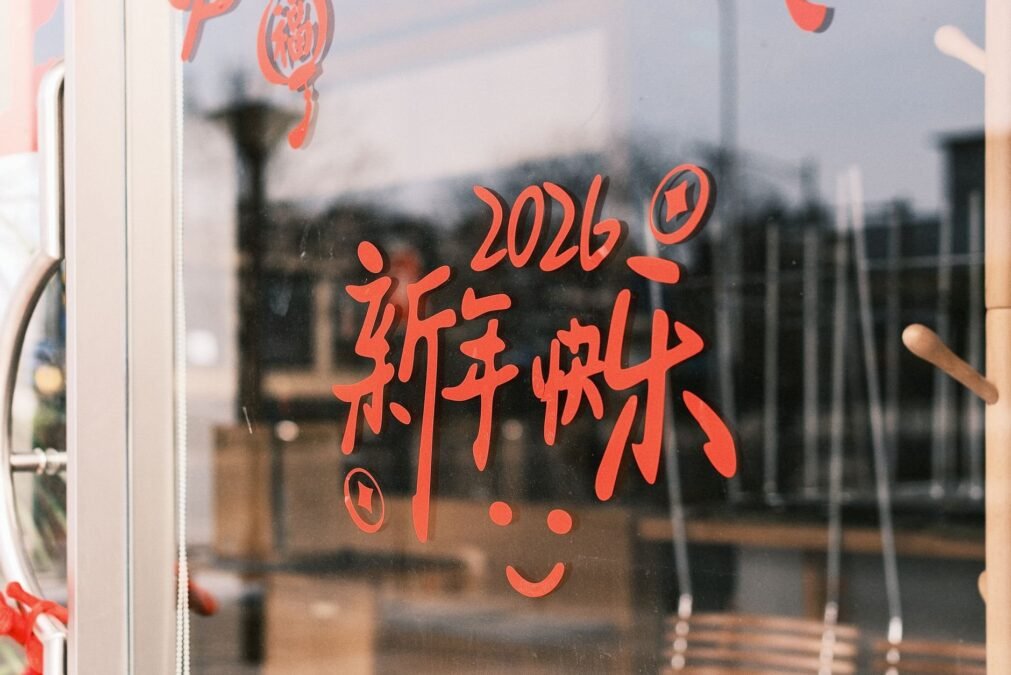 福
2026
新年快乐